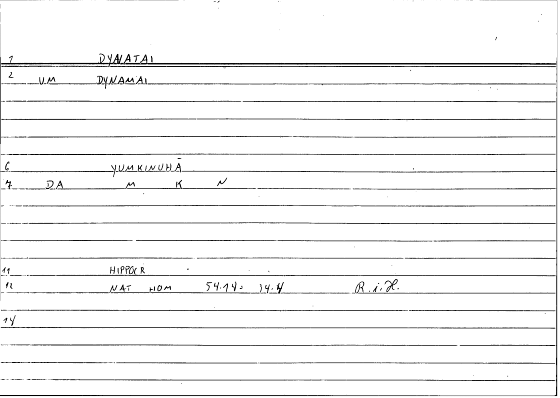 1 DYNATAI
2 VM DYNAMAI
6 YUMKINUHĀ
7 DA M K N
11 HIPPOCR
12 NAT HOM 54.14 = 14.4 R.i.H.
14